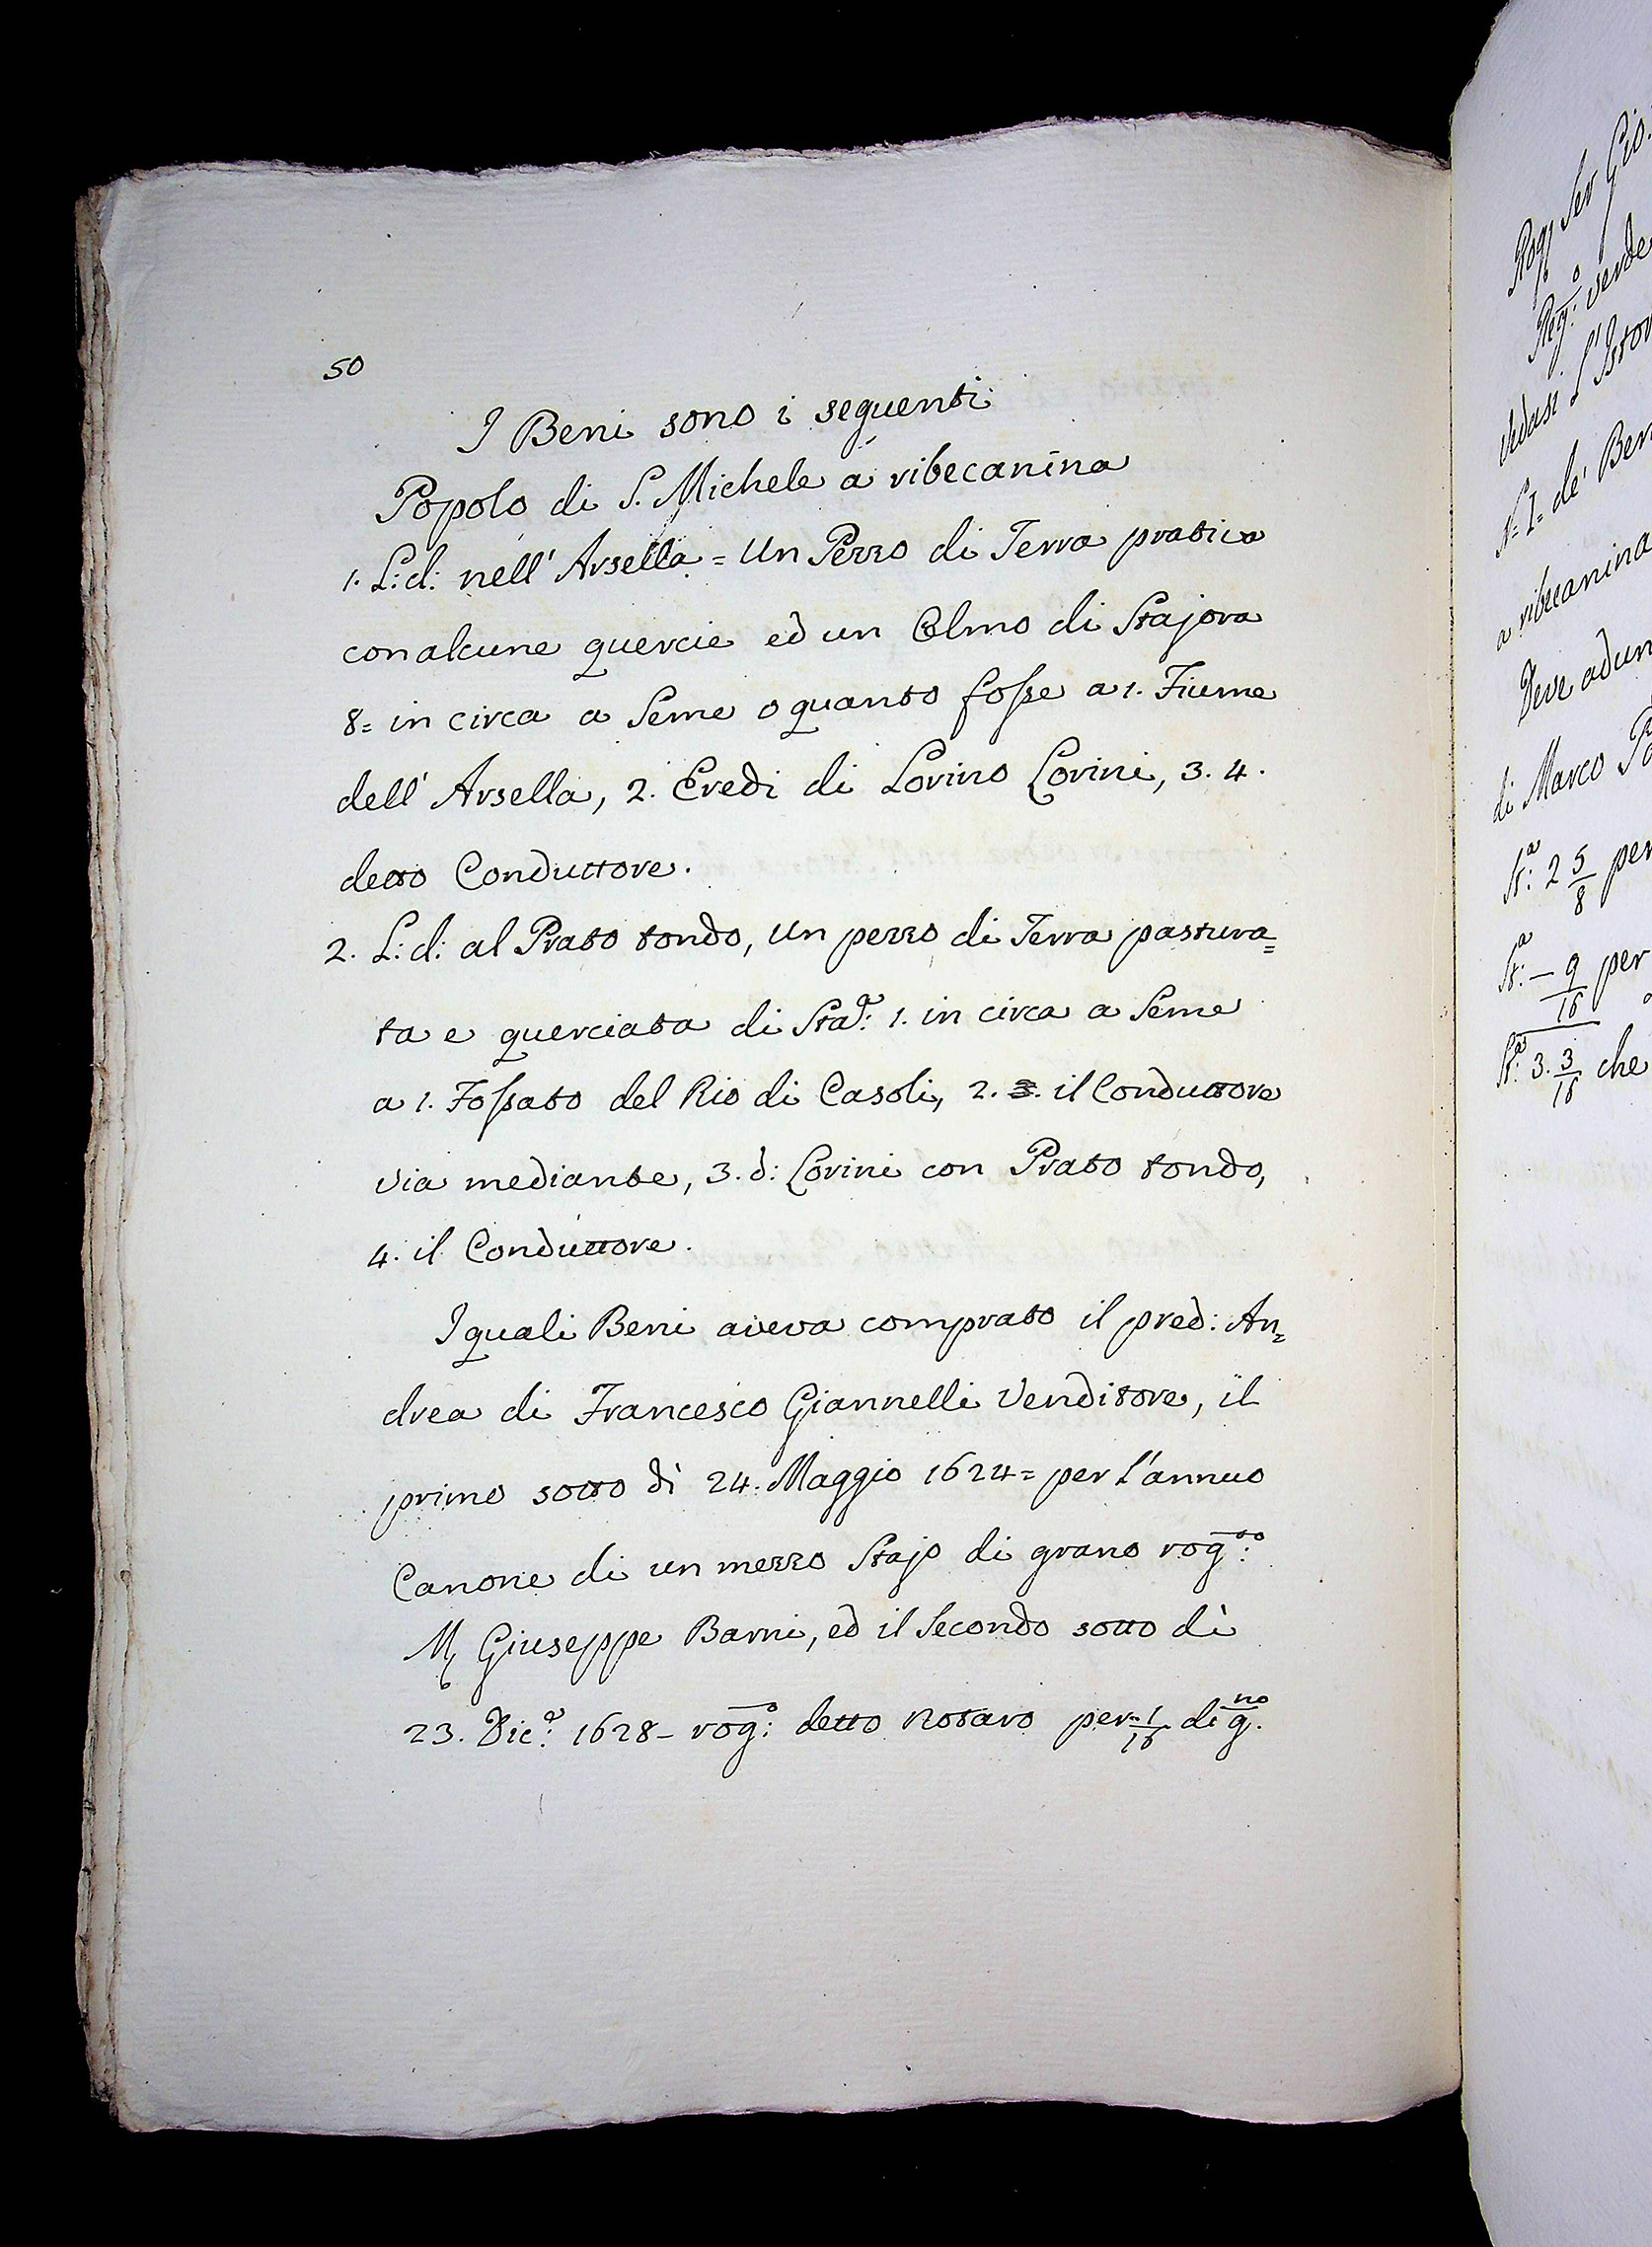 50
I Beni sono i seguenti
Popolo di S. Michele a ribecanina
1. L: d: nell' Arsella = Un Pezzo di Terra pratiua
con alcune quercie ed un Olmo di Stajora
8 = in circa a Seme o quanto fosse a 1. Fiume
dell' Arsella, 2. Eredi di Lorino Lorini, 3. 4.
detto Conduttore.
2. L: d: al Prato tondo, Un pezzo di Terra pastura=
ta e querciata di Sta:ª 1. in circa a Seme
a 1. Fossato del Rio di Casoli, 2. 3. il Conduttore
via mediante, 3. d: Lorini con Prato tondo,
4. il Conduttore.
I quali Beni aveva comprato il pred: An=
drea di Francesco Giannelli Venditore, il
primo sotto dì 24. Maggio 1624 = per l'annuo
Canone di un mezzo Stajo di grano rog:to
M Giuseppe Barni, ed il Secondo sotto dì
23. Dic:e 1628 - rog:o detto Notaro per 1/16 di g.no
Rog Ser Gio.
Reg:o verde
Vedasi L' Istor
N= I= de' Ben
a ribecanina
Deve adun
di Marco
St:a 2 5/8 per
St:a - 9/16 per
St:a 3. 3/16 che